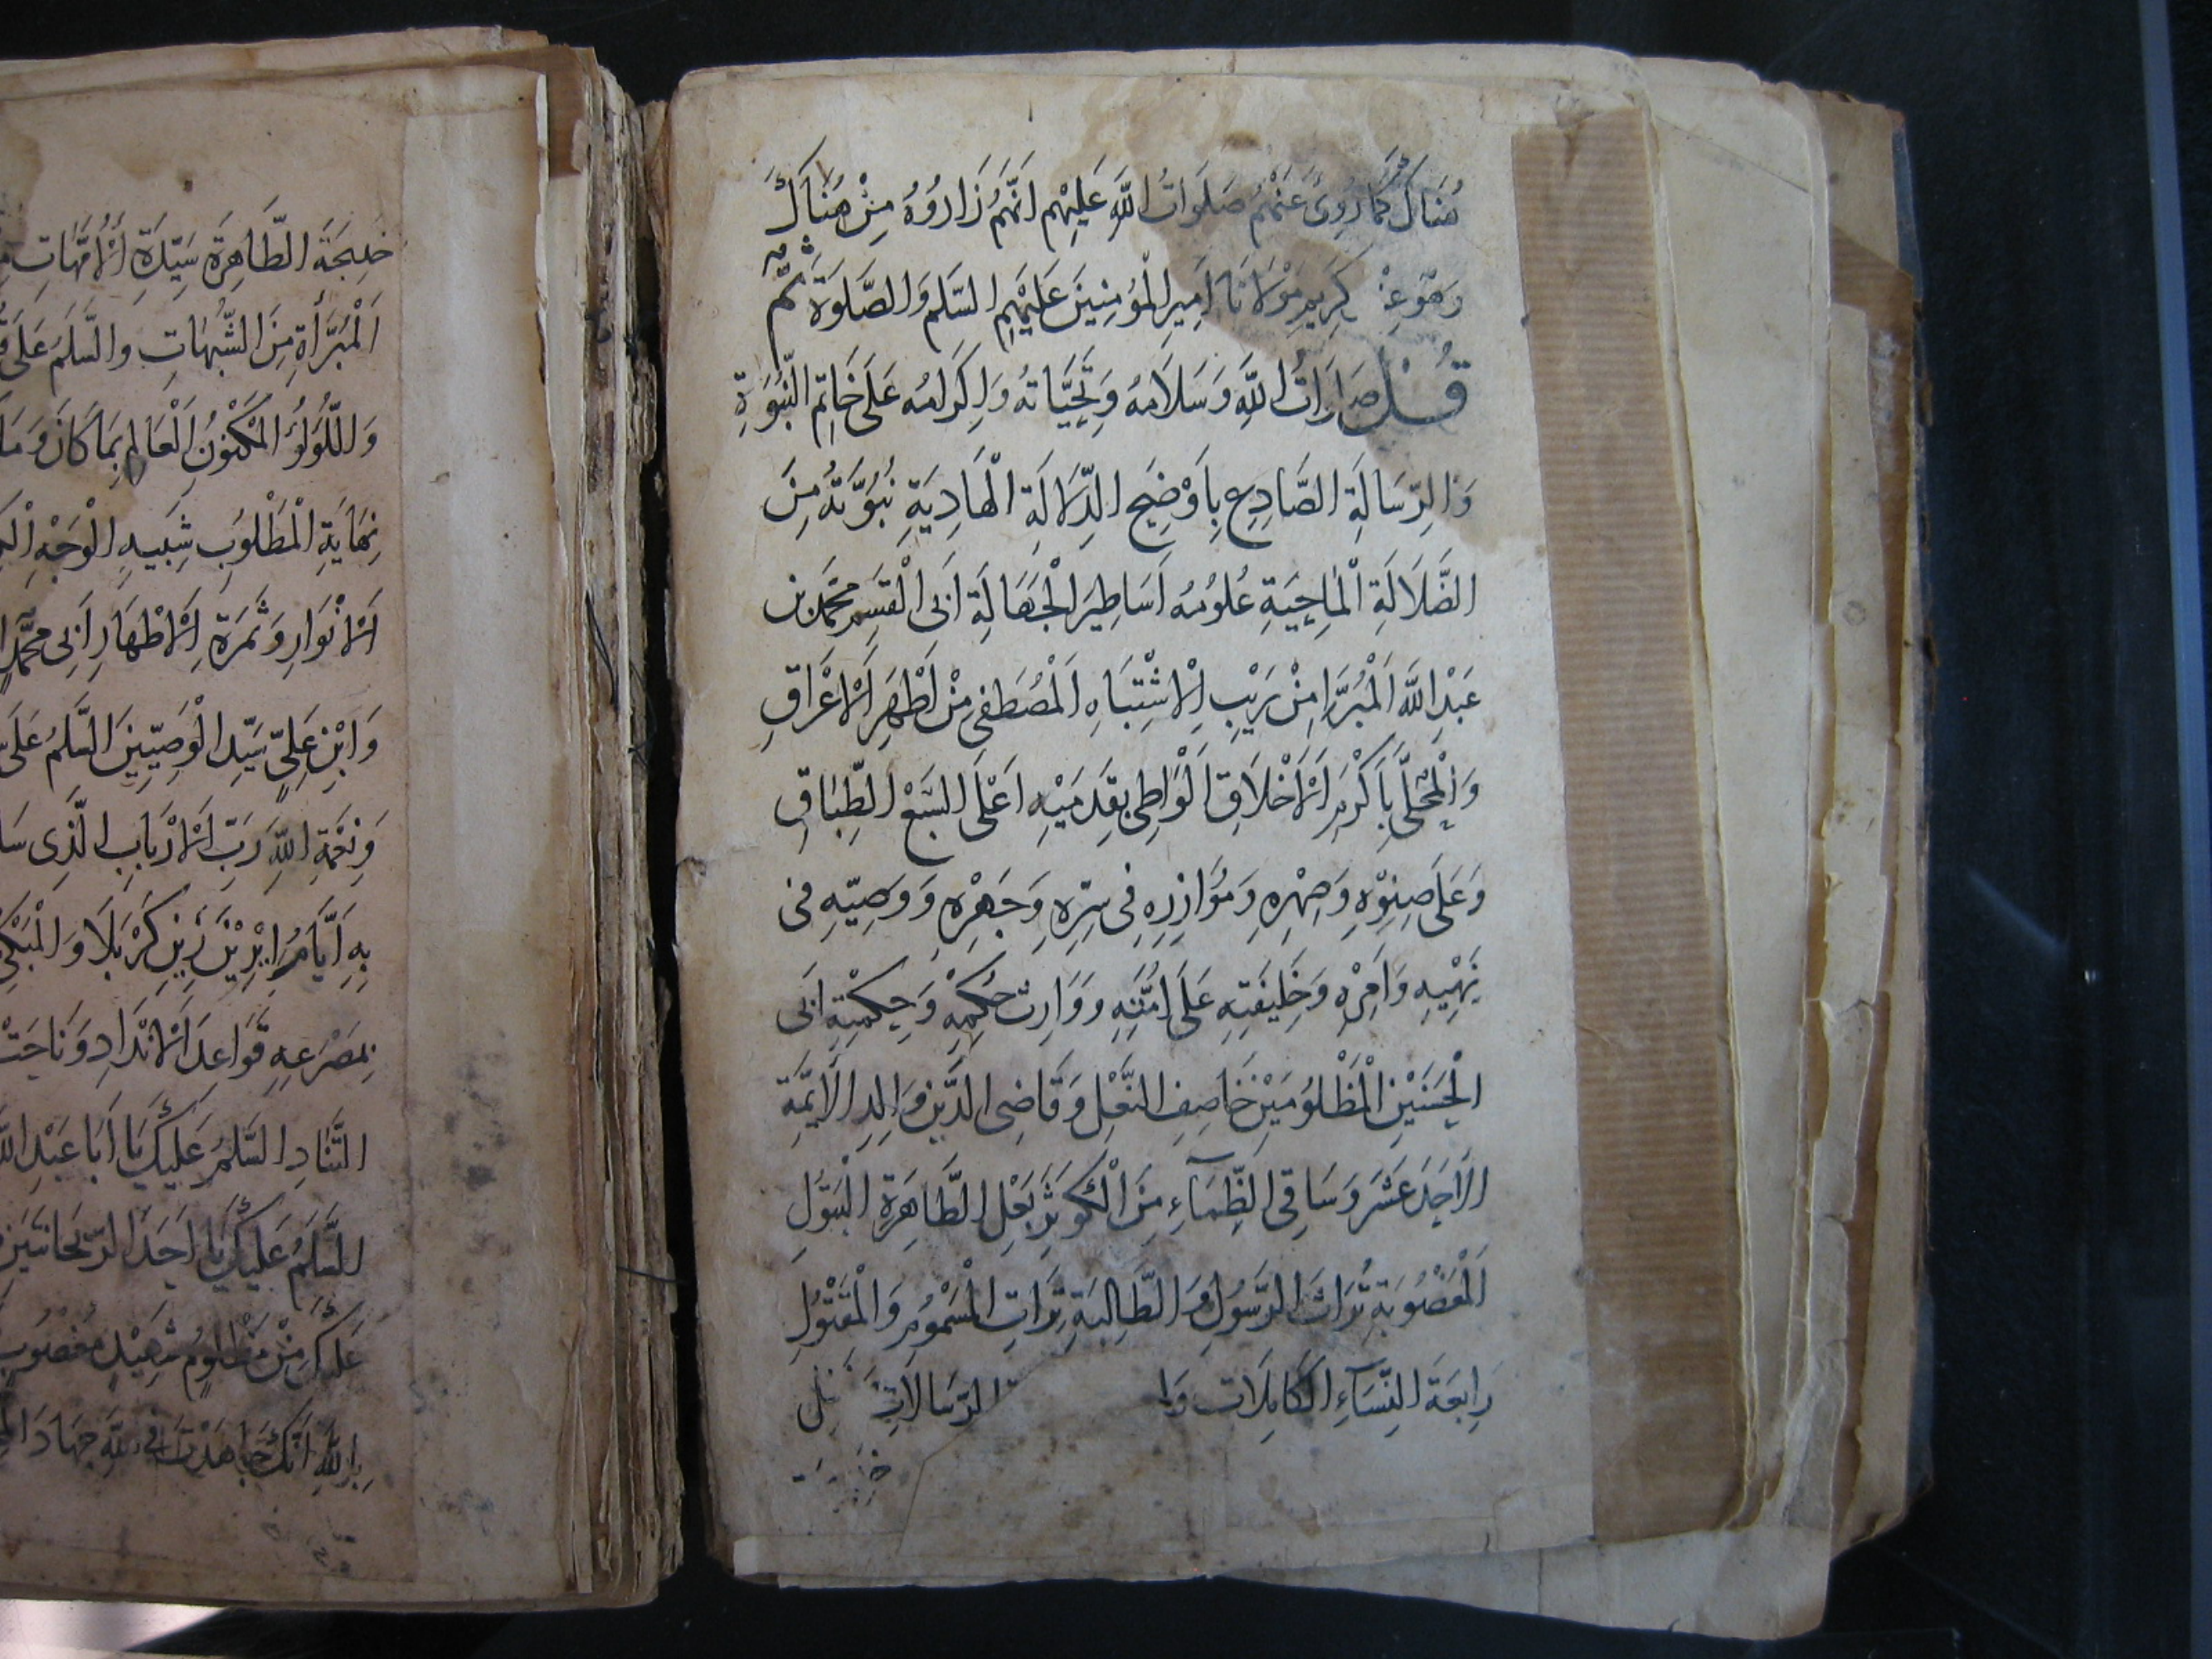 هُنَاكَ كَمَا رُوِيَ عَنْهُمْ صَلَوَاتُ اللَّهِ عَلَيْهِم اَنَّهُمْ زَارُوهُ مِنْ هُنَاكَ
مَوْلَانَا اَمِيرِ الْمُؤمِنِينَ عَلَيْهِمِ السَّلم وَالصَّلوَة ثُمَّ
قُلْ اللَّهِ وَسَلَامُهُ وَتَحِيَّاتهُ وَاِكرَامُه عَلَى خَاتِمِ النُّبُوَّةِ
وَالرِّسَالَةِ الصَّادِعِ بِاَوْضَحِ الدِّلَالَةِ الْهَادِيَةِ نُبُوَّتُهُ مِنَ
الضَّلَالَةِ الْمَاحِيَةِ عُلُومُهُ اَسَاطِيرَ الْجَهَالَةِ اَبِى الْقٰسِم مُحَمَّد بْن
عَبْدِ اللَّه اَلْمُبَرَّا مِنْ رَيْبِ اْلاِشْتِبَاهِ اَلْمُصْطَفى مِنْ اَطْهَرِ اَلْاَعْرَاقِ
وَالْمُحَلَّى بِاَكْرَمِ اَلْاَخْلَاقِ اَلْوَاطِى بِقَدَمَيْهِ اَعْلَى السَّبْعِ الطِّبَاقِ
وَعَلَى صِنْوِهِ وَصِهْرِهِ وَمُوَازِرِهِ فِى سِرِّهِ وَجَهْرِهِ وَوَصِيِّهِ فى
نَهْيِهِ وَاَمْرِهِ وَخَلِيفَتِهِ عَلَى اُمَّتِهِ وَوَارِث حُكمِهِ وَحِكمَتِهِ اَبى
الْحَسَنَيْنِ الْمَظْلُومَيْنِ خَاصِفِ النَّعْلِ وَقَاضِى الدَّيْنِ وَالِدِ الْاَئِمَّةِ
الْاَحَدَ عَشَرَ وَسَاقِى الظِّمَآءِ مِنَ الْكَوْثَرِ بَعْلِ الطَّاهِرَةِ الْبَتُولِ
اَلْمَغْصُوبَةِ تُرَاثَ الرَّسُولِ وَالطَّالِبَةِ بِتِرَاتِ الْمَسْمُومِ وَالْمَقْتُولِ
رَابِعَةِ النِّسَآءِ الْكَامِلَات الرِّسَالَاتِ
خَدِيجَةَ الطَّاهِرَةِ سَيِّدَةِ اْلاُمَّهَاتِ
اَلْمُبَرَّأَةِ مِنَ الشُّبُهَاتِ وَالسَّلَمُ عَلَى
وَاللُّؤلُؤِ الْمَكْنُونِ الْعَالِمِ بِمَا كَانَ وَمَا
نِهَايَةِ الْمَطْلُوبِ شَبِيهِ الْوَجْهِ
اَلْاَنْوَارِ وَثَمَرَةِ اَلْاَطْهَارِ اَبِى مُحَمَّدٍ
وَابْنِ عَلِيٍّ سَيِّدِ الْوَصِيِّينَ السَّلَمُ عَلَى
وَنِعْمَةِ اللَّهِ رَبِّ اَلْاَرْبَابِ الَّذِى
بِهِ اَيَّامُ كَرْبَلَا وَالْمَبْكِي
بِمَصْرَعِهِ قَوَاعِدَ اَلْاَنْدَادِ وَنَاحَتْ
التَّنَادِ السَّلَمُ عَلَيْكَ يَا اَبَا عَبْدِ اللَّهِ
السَّلَمُ عَلَيْكَ يَا اَحَدَ الرَّيحَانَتَيْنِ
عَلَيْكَ مِنْ مَظْلُومٍ شَهِيْدٍ مَغْصُوبٍ
بِاللَّهِ اَنَّكَ جَاهَدْتَ فِى اللَّهِ جِهَادَ